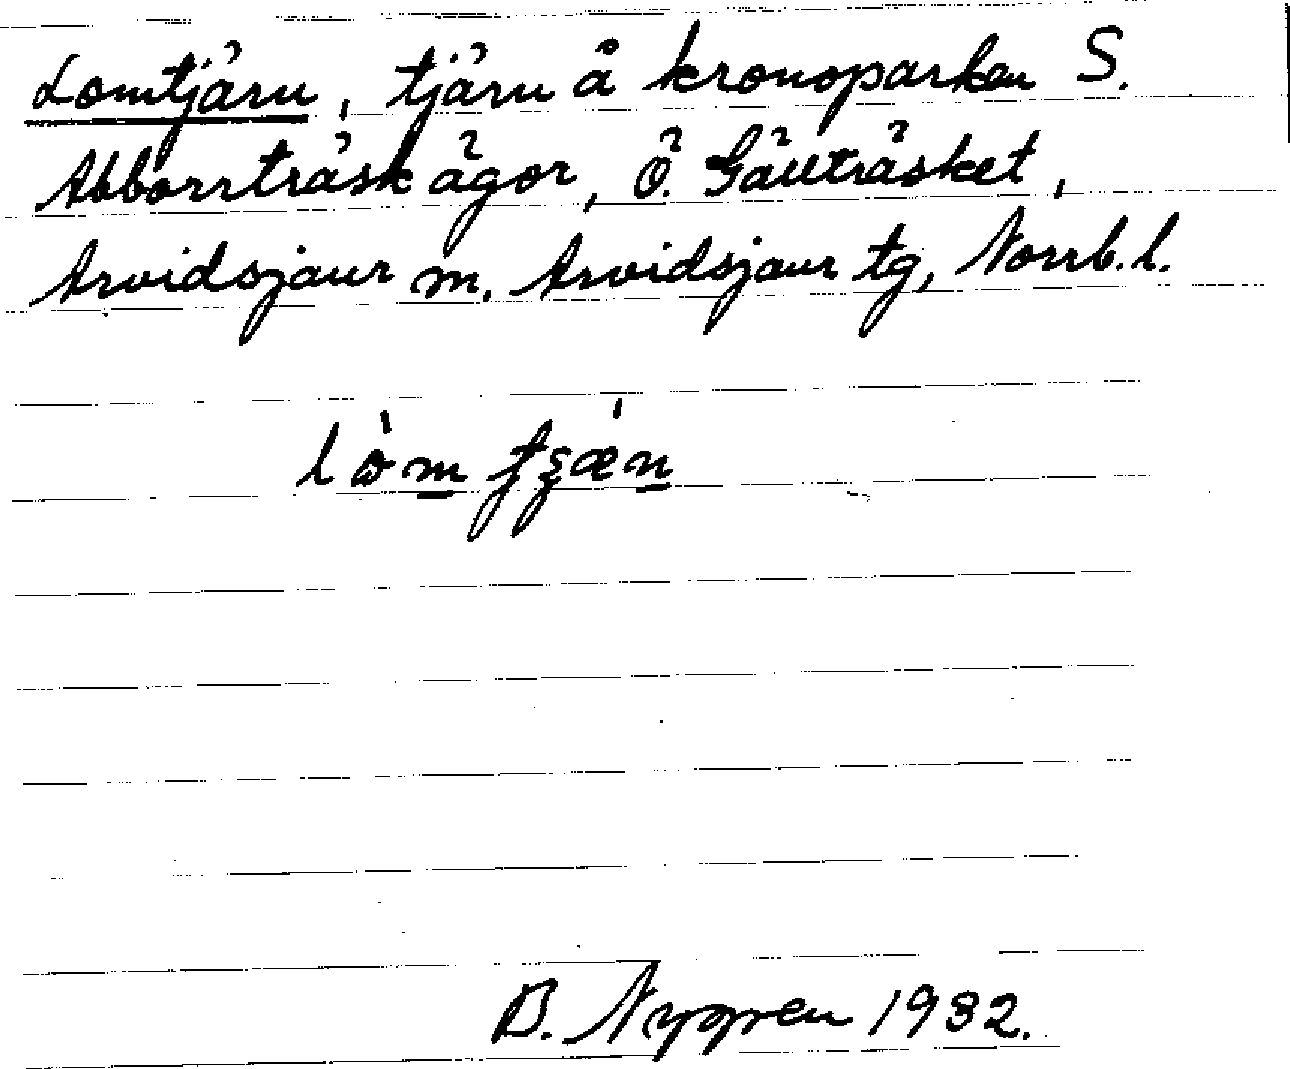 Lomtjärn, tjärn å kronoparken S.
Abborrträsk ägor, ö. Gäuträsket,
Arvidsjaur sn. Arvidsjaur tg, Norrb. l.
B. Nygren 1932.